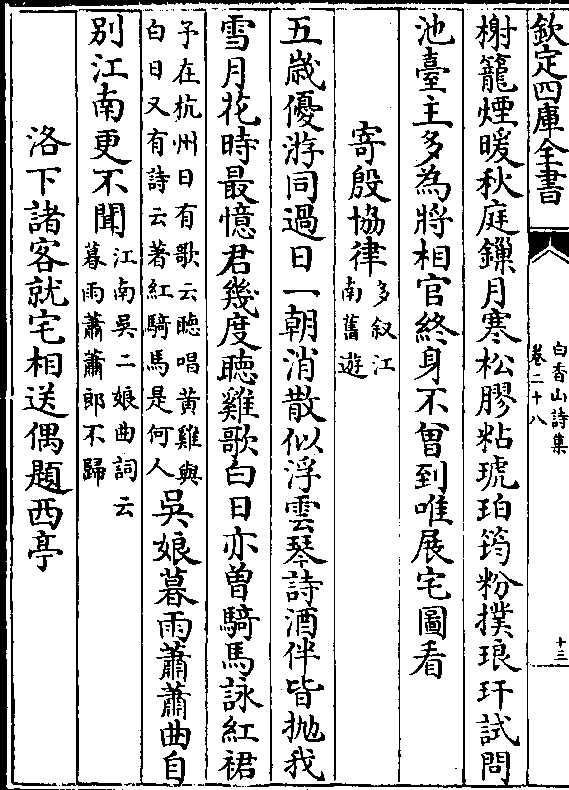 欽定四庫全書
白香山詩集
卷二十八
十三
榭籠煙暖秋庭鏁月寒松膠粘琥珀筠粉撲琅玕試問
池臺主多為將相官終身不曾到唯展宅圖看
寄殷協律多叙江南舊遊
五嵗優游同過日一朝消散似浮雲琴詩酒伴皆抛我
雪月花時最憶君幾度聴雞歌白日亦曽騎馬詠紅裙
予在杭州日有歌云聴唱黄雞與
白日又有詩云著紅騎馬是何人
吳娘暮雨蕭蕭曲自
别江南更不聞
江南吳二娘曲詞云
暮雨蕭蕭郎不歸
洛下諸客就宅相送偶題西亭